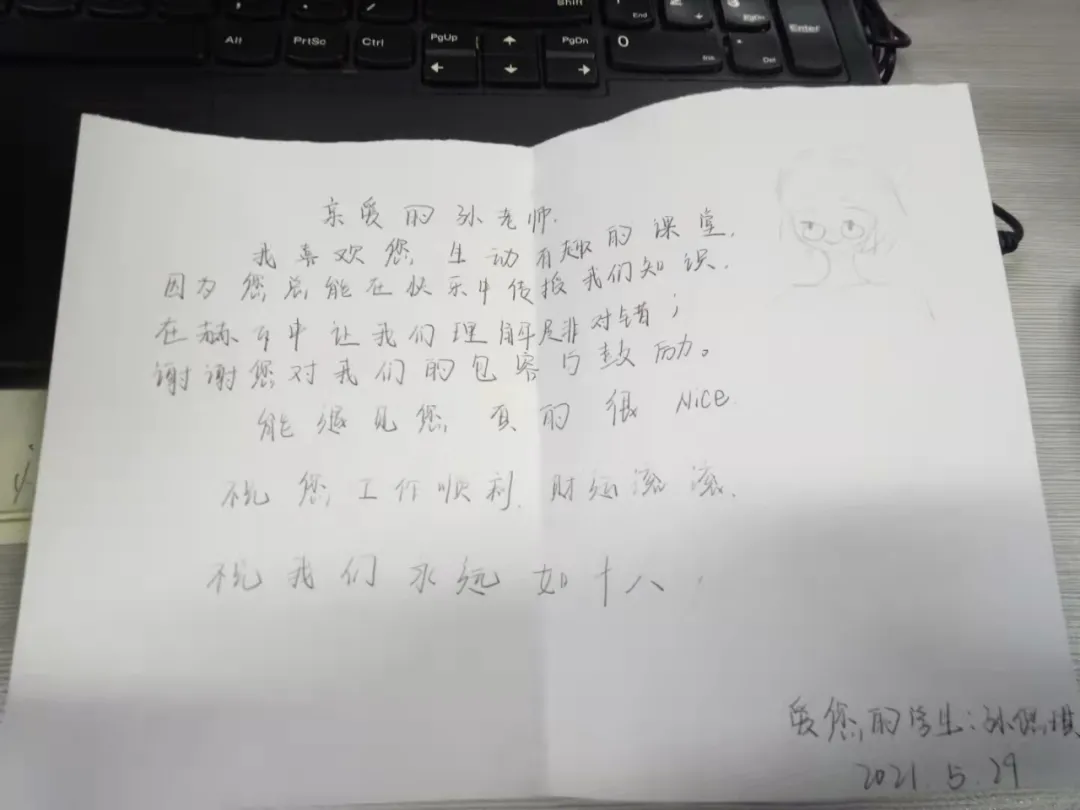 Shift
End
PgDn
Alt
PrtSc
Ctrl
PgUp
PgDn
0
Ins
Del
Enter
亲爱的孙老师.
我喜欢您,生动有趣的课堂.
因为您总能在快乐中传授我们知识.
在中让我们理解是非对错;
谢谢您对我们的包容与鼓励。
能遇见您,真的很 Nice.
祝您工作顺利.财运滚滚.
祝我们永远如十八.
爱您的学生:孙
2021.5.29